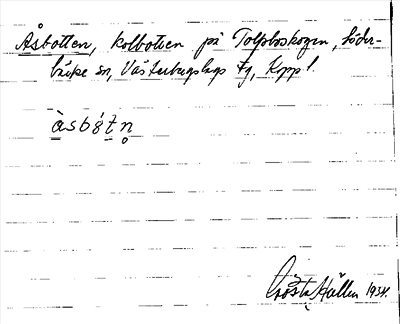 Åsbotten, kolbotten på Tolfsboskogen, Söder-
bärke sn, Västerbergslags fg, Kopp l.
àsbótn̥
Gösta Hållen 1934.